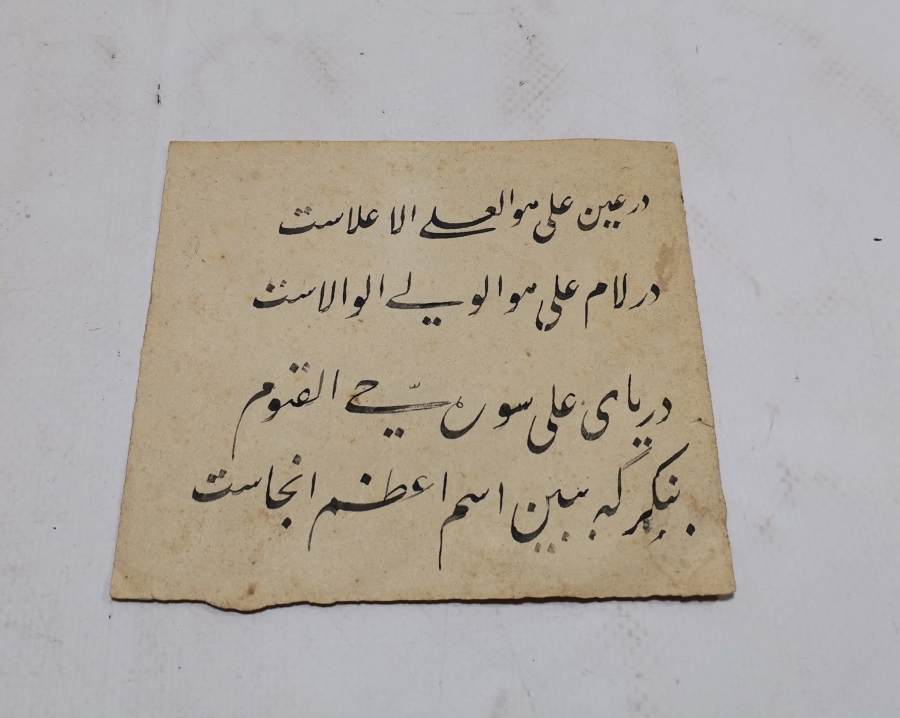 در عین علی هو العلی الاعلاست
در لام علی هو الولی الوالاست
در یای علی سوره حی القیوم
بنگر که ببین اسم اعظم انجاست